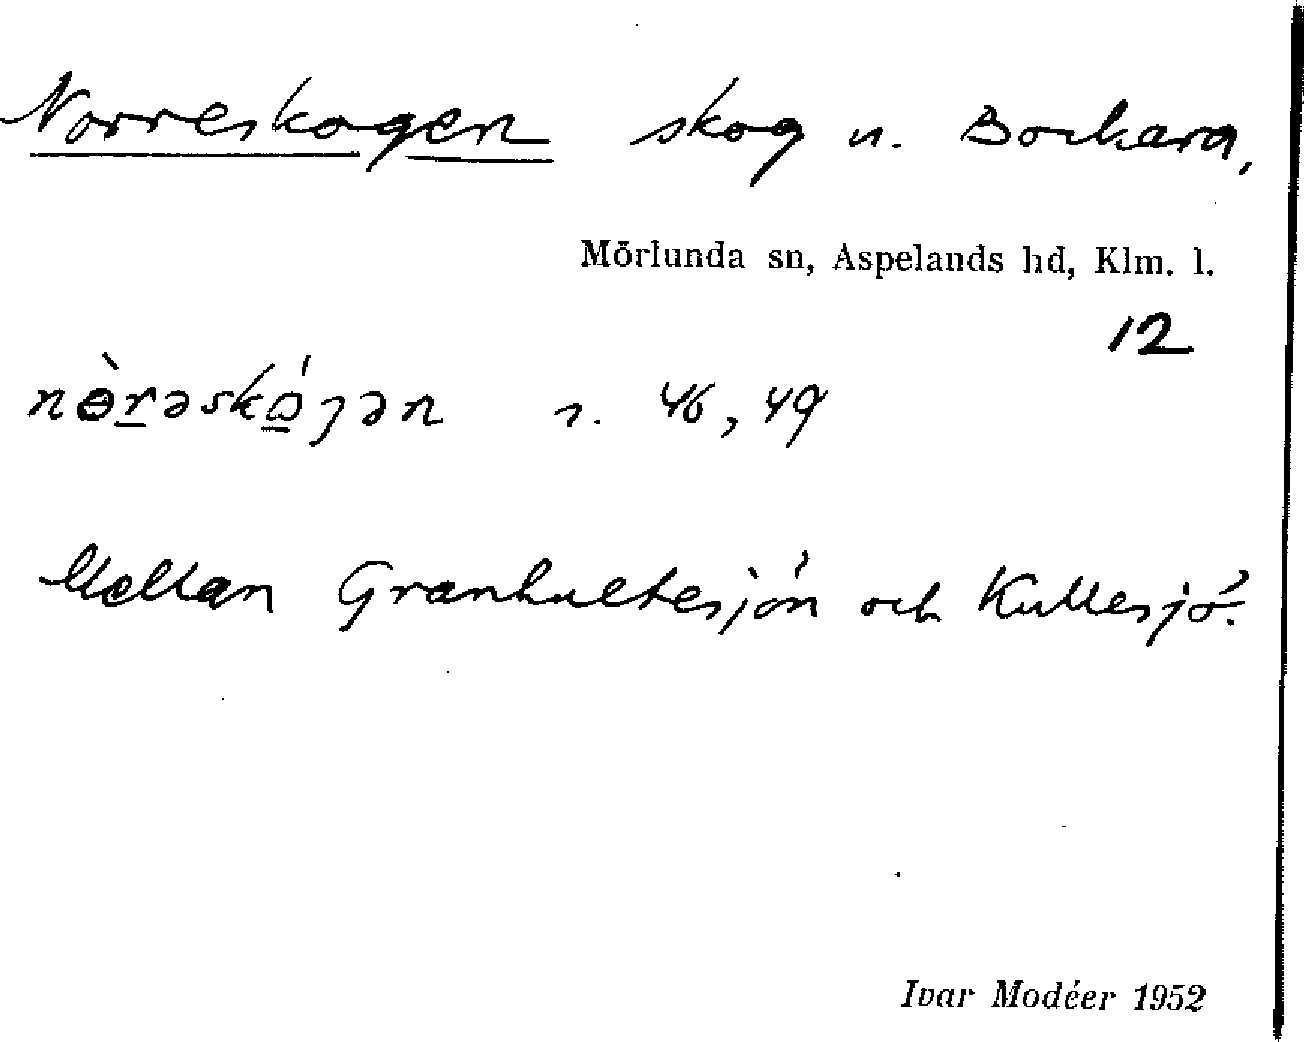 Norreskogen skog n. Bockara,
Mörlunda sn, Aspelands hd, Klm. l.
12
nɵ̀rəskó̱ɟən s. 46, 49
Mellan Granhultesjön och Kullesjö.
Ivar Modéer 1952